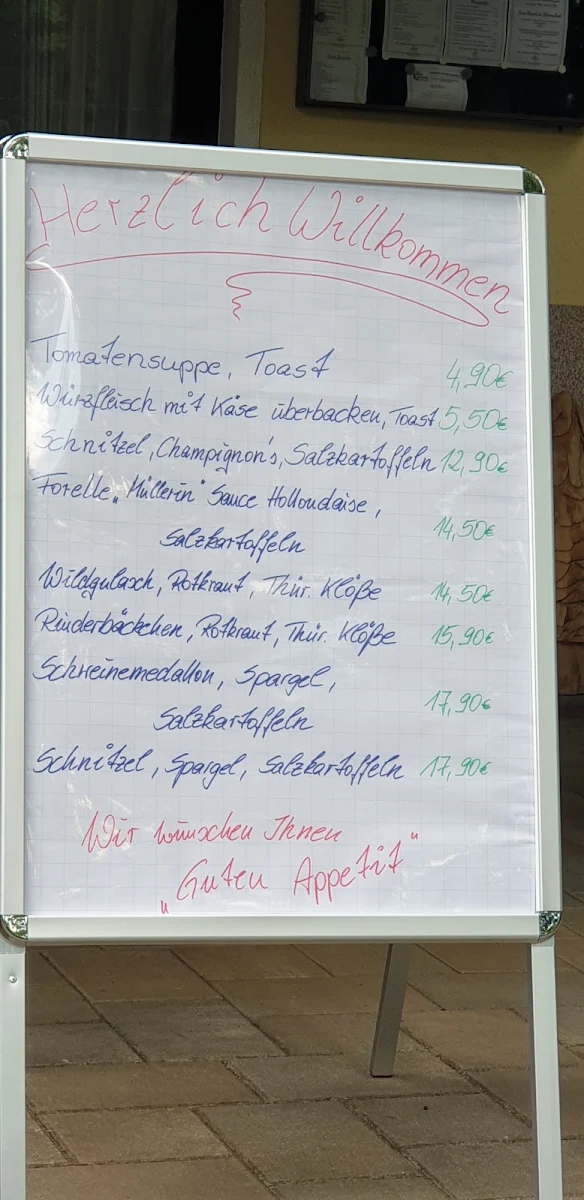 Herzlich Willkommen
Tomatensuppe, Toast 4,90€
Würzfleisch mit Käse überbacken, Toast 5,50€
Schnitzel, Champignon's, Salzkartoffeln 12,90€
Forelle „Müllerin" Sauce Hollondaise,
Salzkartoffeln 14,50€
Wildgulasch, Rotkraut, Thür. Klöße 14,50€
Rinderbäckchen, Rotkraut, Thür. Klöße 15,90€
Schweinemedallon, Spargel,
Salzkartoffeln 17,90€
Schnitzel, Spargel, Salzkartoffeln 17,90€
Wir wünschen Ihnen
„Guten Appetit"